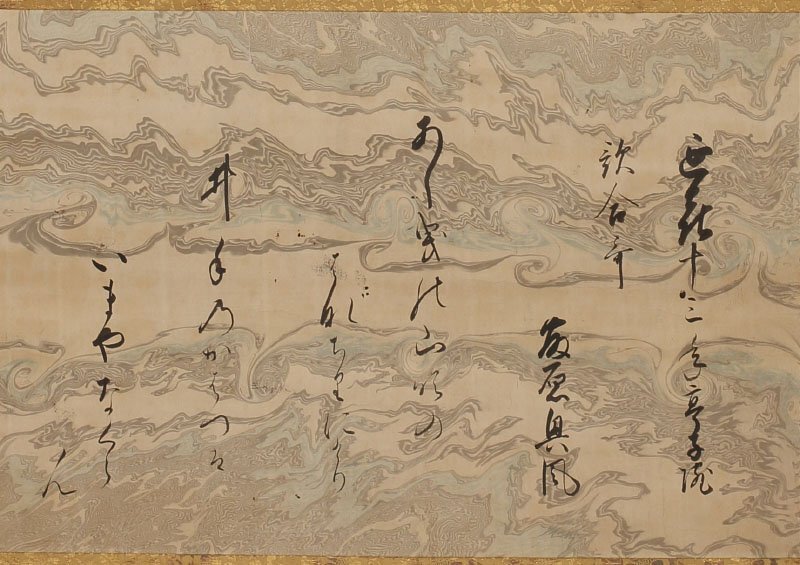 延喜十三年亭子院
歌合哥
藤原興風
あし曳の山吹の
はなちりにけり
井手乃かはつは
いまやなくらん